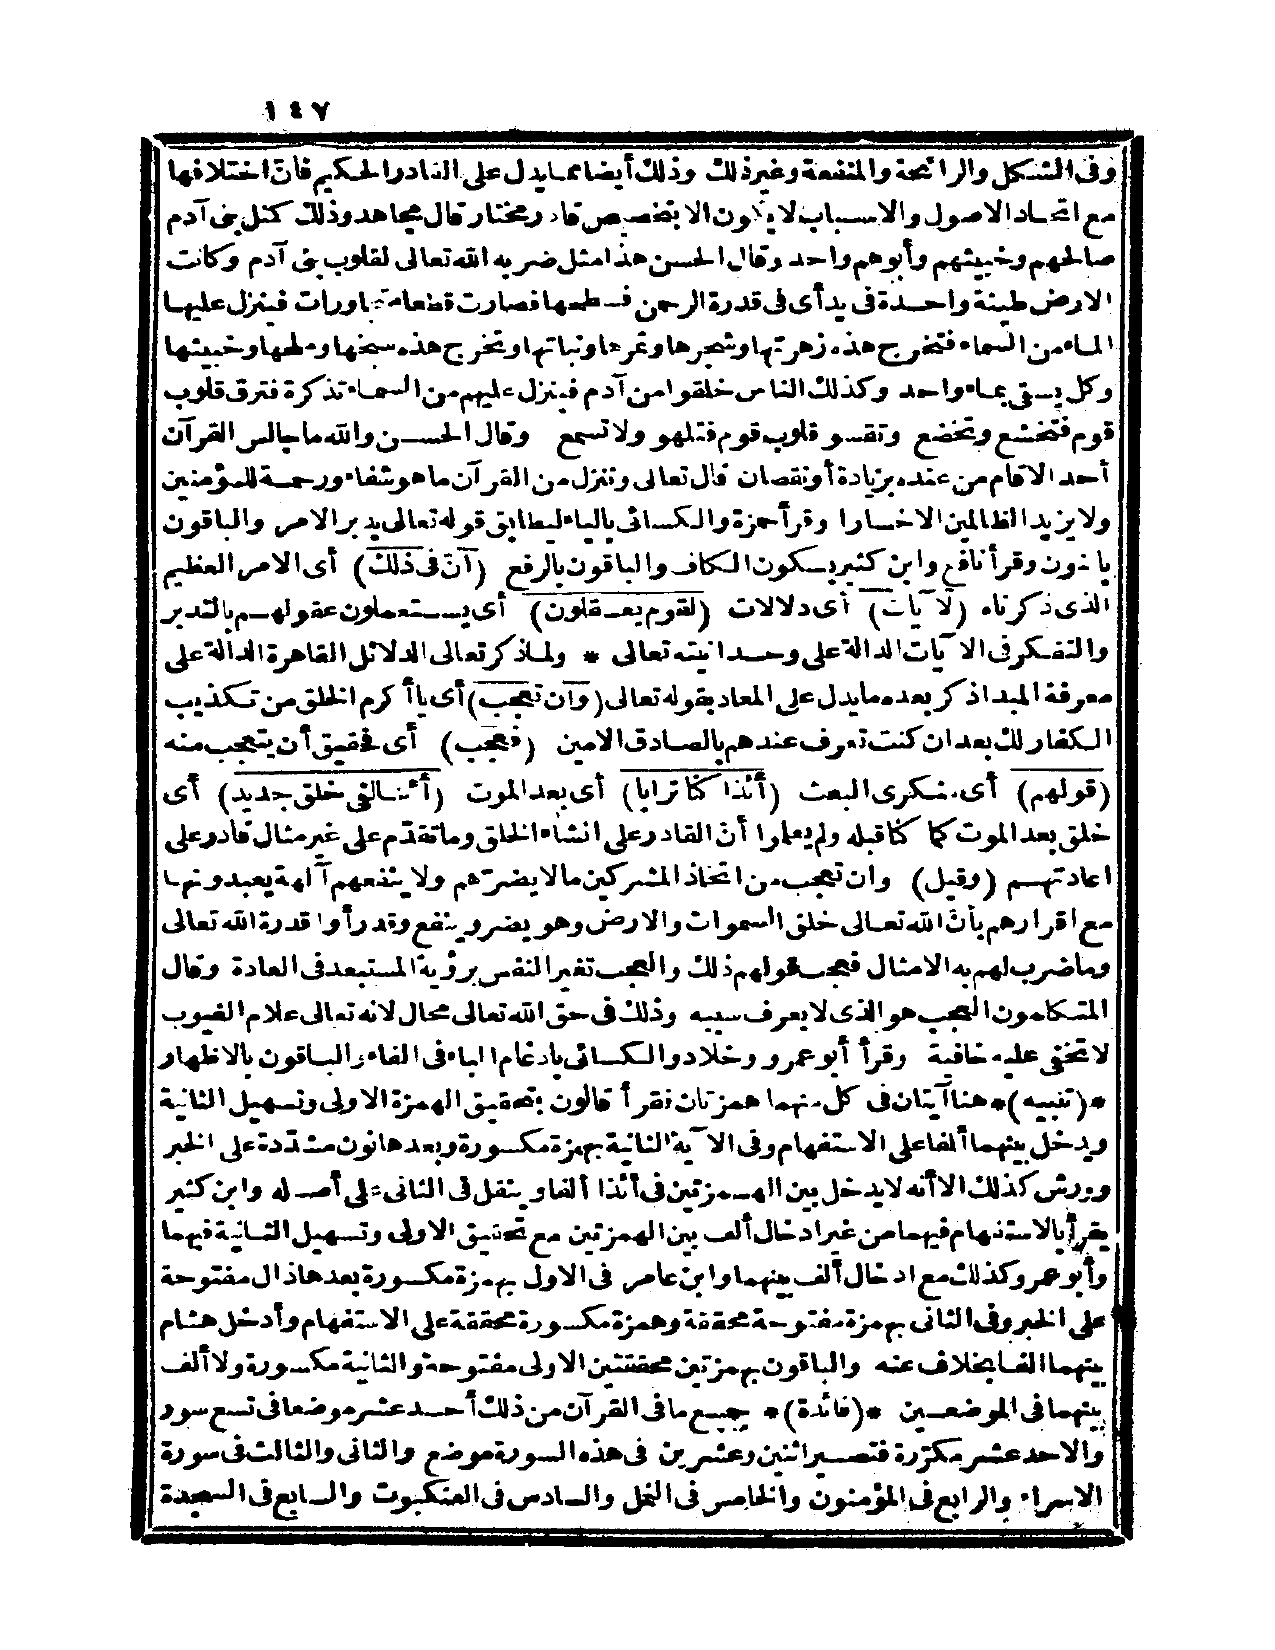 ١٤٧
وفى الشكل والرائحة والمنفعة وغير ذلك وذلك أيضا مما يدل على القادر الحكيم فان اختلافها
مع اتحاد الاصول والاسباب لا يكون الا بتخصيص قادر مختار قال مجاهد وذلك كمثل بنى آدم
صالحهم وخبيثهم وأبوهم واحد وقال الحسن هذا مثل ضربه الله تعالى لقلوب بنى آدم وكانت
الارض طينة واحدة فى يد أى فى قدرة الرحمن فسطحها فصارت قطعا متجاورات فينزل عليها
الماء من السماء فتخرج هذه زهرتها وشجرها وثمرها ونباتها وتخرج هذه سبخها وملحها وخبيثها
وكل يسقى بماء واحد وكذلك الناس خلقوا من آدم فينزل عليهم من السماء تذكرة فترق قلوب
قوم فتخشع وتخضع وتقسو قلوب قوم فتلهو ولا تسمع وقال الحسن والله ما جالس القرآن
أحد الا قام من عنده بزيادة أو نقصان قال تعالى وننزل من القرآن ما هو شفاء ورحمة للمؤمنين
ولا يزيد الظالمين الا خسارا وقرأ حمزة والكسائى بالياء ليطابق قوله تعالى يدبر الامر والباقون
بالنون وقرأ نافع وابن كثير بسكون الكاف والباقون بالرفع (انّ فى ذلك) أى الامر العظيم
الذى ذكرناه (لآيات) أى دلالات (لقوم يعقلون) أى يستعملون عقولهم بالتدبر
والتفكر فى الآيات الدالة على وحدانيته تعالى * ولما ذكر تعالى الدلائل القاهرة الدالة على
معرفة المبدا ذكر بعده ما يدل على المعاد بقوله تعالى (وان تعجب) أى يا أكرم الخلق من تكذيب
الكفار لك بعد ان كنت تعرف عندهم بالصادق الامين (فعجب) أى فحقيق أن يتعجب منه
(قولهم) أى منكرى البعث (أئذا كنا ترابا) أى بعد الموت (أئنا لفى خلق جديد) أى
خلق بعد الموت كما كنا قبله ولم يعلموا أنّ القادر على انشاء الخلق وما تقدّم على غير مثال قادر على
اعادتهم (وقيل) وان تعجب من اتخاذ المشركين ما لا يضرّهم ولا ينفعهم آلهة يعبدونها
مع اقرارهم بأنّ الله تعالى خلق السموات والارض وهو يضر وينفع وقد رأوا قدرة الله تعالى
وما ضرب لهم به الامثال فعجب قولهم ذلك والعجب تغير النفس برؤية المستبعد فى العادة وقال
المتكلمون العجب هو الذى لا يعرف سببه وذلك فى حق الله تعالى محال لانه تعالى علام الغيوب
لا تخفى عليه خافية وقرأ أبو عمرو وخلاد والكسائى بادغام الباء فى الفاء والباقون بالاظهار
*(تنبيه)* هنا آيتان فى كل منهما همزتان فقرأ قالون بتحقيق الهمزة الاولى وتسهيل الثانية
ويدخل بينهما ألفا على الاستفهام وفى الآية الثانية بهمزة مكسورة وبعدها نون مشدّدة على الخبر
وورش كذلك الا أنه لا يدخل بين الهمزتين فى أئذا ألفا وينقل فى الثانى على أصله وابن كثير
يقرأ بالاستفهام فيهما من غير ادخال ألف بين الهمزتين مع تحقيق الاولى وتسهيل الثانية فيهما
وأبو عمرو كذلك مع ادخال ألف بينهما وابن عامر فى الاول بهمزة مكسورة بعدها ذال مفتوحة
على الخبر وفى الثانى بهمزة مفتوحة محققة وهمزة مكسورة محققة على الاستفهام وأدخل هشام
بينهما الفا بخلاف عنه والباقون بهمزتين محققتين الاولى مفتوحة والثانية مكسورة ولا ألف
بينهما فى الموضعين *(فائدة)* جميع ما فى القرآن من ذلك أحد عشر موضعا فى تسع سور
والاحد عشر مكرّرة فتصير اثنين وعشرين فى هذه السورة موضع والثانى والثالث فى سورة
الاسراء والرابع فى المؤمنون والخامس فى النمل والسادس فى العنكبوت والسابع فى السجدة